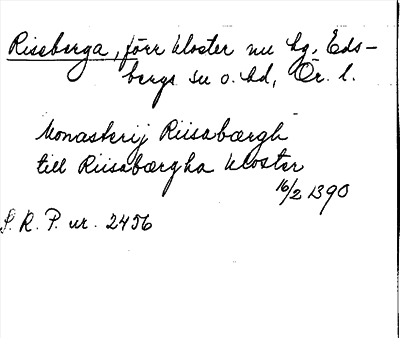 Riseberga, förr kloster nu hg, Eds-
bergs sn o. hd, Ör. l.
Monasterij Riisabærgh
till Riisabærgha kloster
16/2 1390
S. R. P. nr. 2456